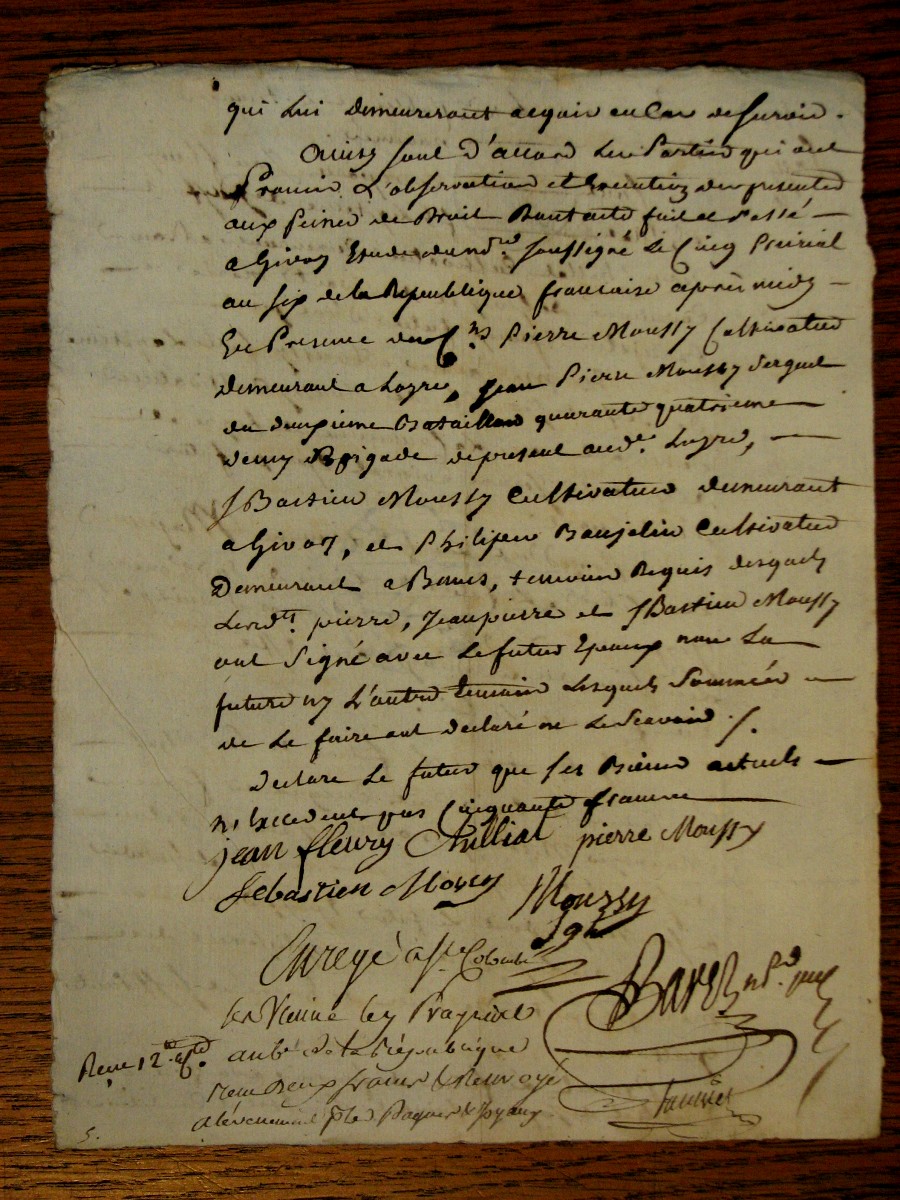 qui lui demeureront acquis en cas de survie.
Ainsy sont d'accord les Parties qui ont
Promis L'observation et Execution des presentes
aux peines de Droit Dont acte fait et Passé
a Givors Etude du nd.re soussigné Le Cinq Prairial
an six de la Republique francaise après midy
En Presence des C.ns Pierre Moussy Cultivateur
demeurant a Loyre, Jean Pierre Moussy Sergent
du deuxieme Bataillon quarante quatrieme
demy Brigade de present aud.t Loyre,
sBastien Moussy Cultivateur demeurant
a Givors, et Philipes Banjelin Cultivateur
Demeurant a Bans, temoins Requis desquels
Lesd.ts pierre, Jean pierre et sBastien Moussy
ont signé avec Le futur Epoux non La
future ny L'autre temoin Lesquels sommés
de Le faire ont declaré ne Le Scavoir ./.
Declare Le futur que ses Biens actuels
n'Excedent pas Cinquante francs
jean fleury Aulliat pierre Moussy
Sebastien Mousy Mouzsy
sgt
Enregé a Ste Colombe
les Vienne le Prairial
an 6e de la République
Reçu 12
recu deux francs & Renvoyé
a l'evenement pr les Bagues & Joyaux
Baret np.d
5.